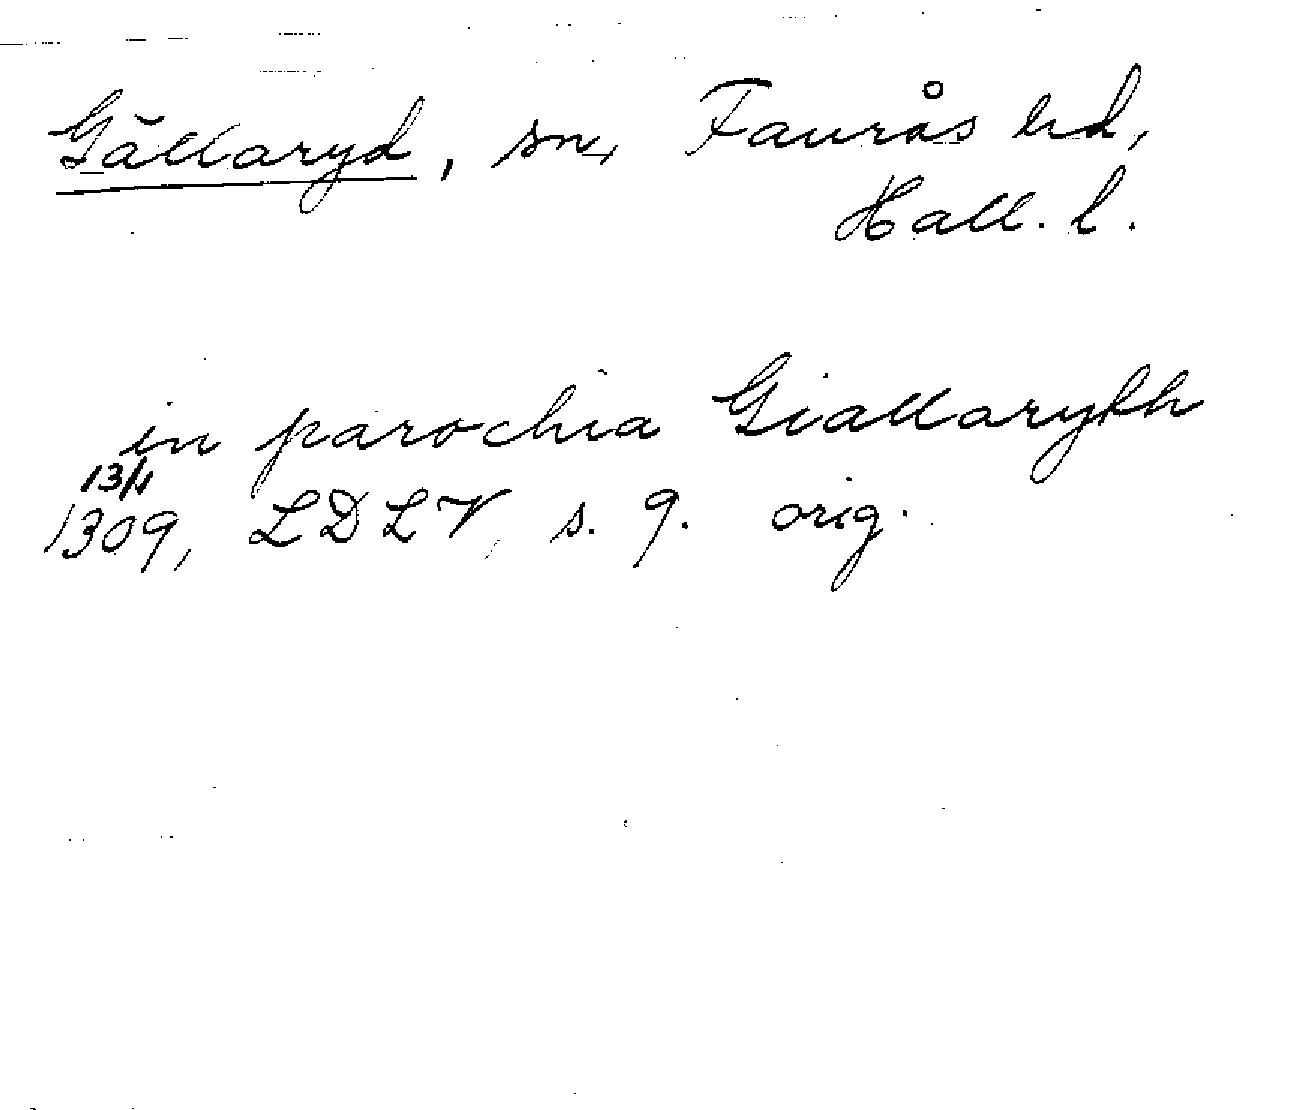 Gällaryd, sn, Faurås hd,
Hall. l.
in parochia Giallaryth
13/1
1309, LDLV, s. 9. orig.